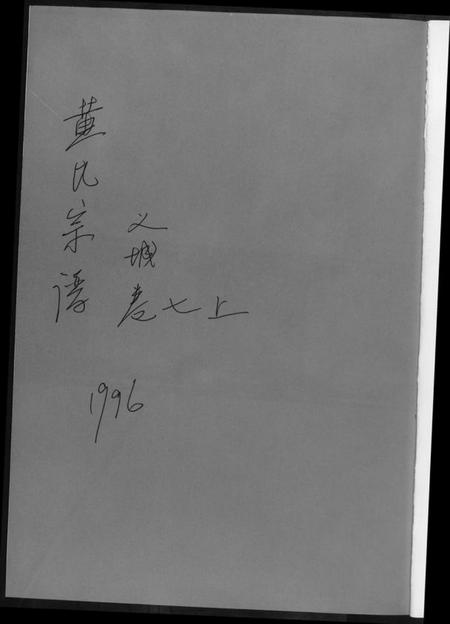 黄氏宗谱
义城
卷七上
1996